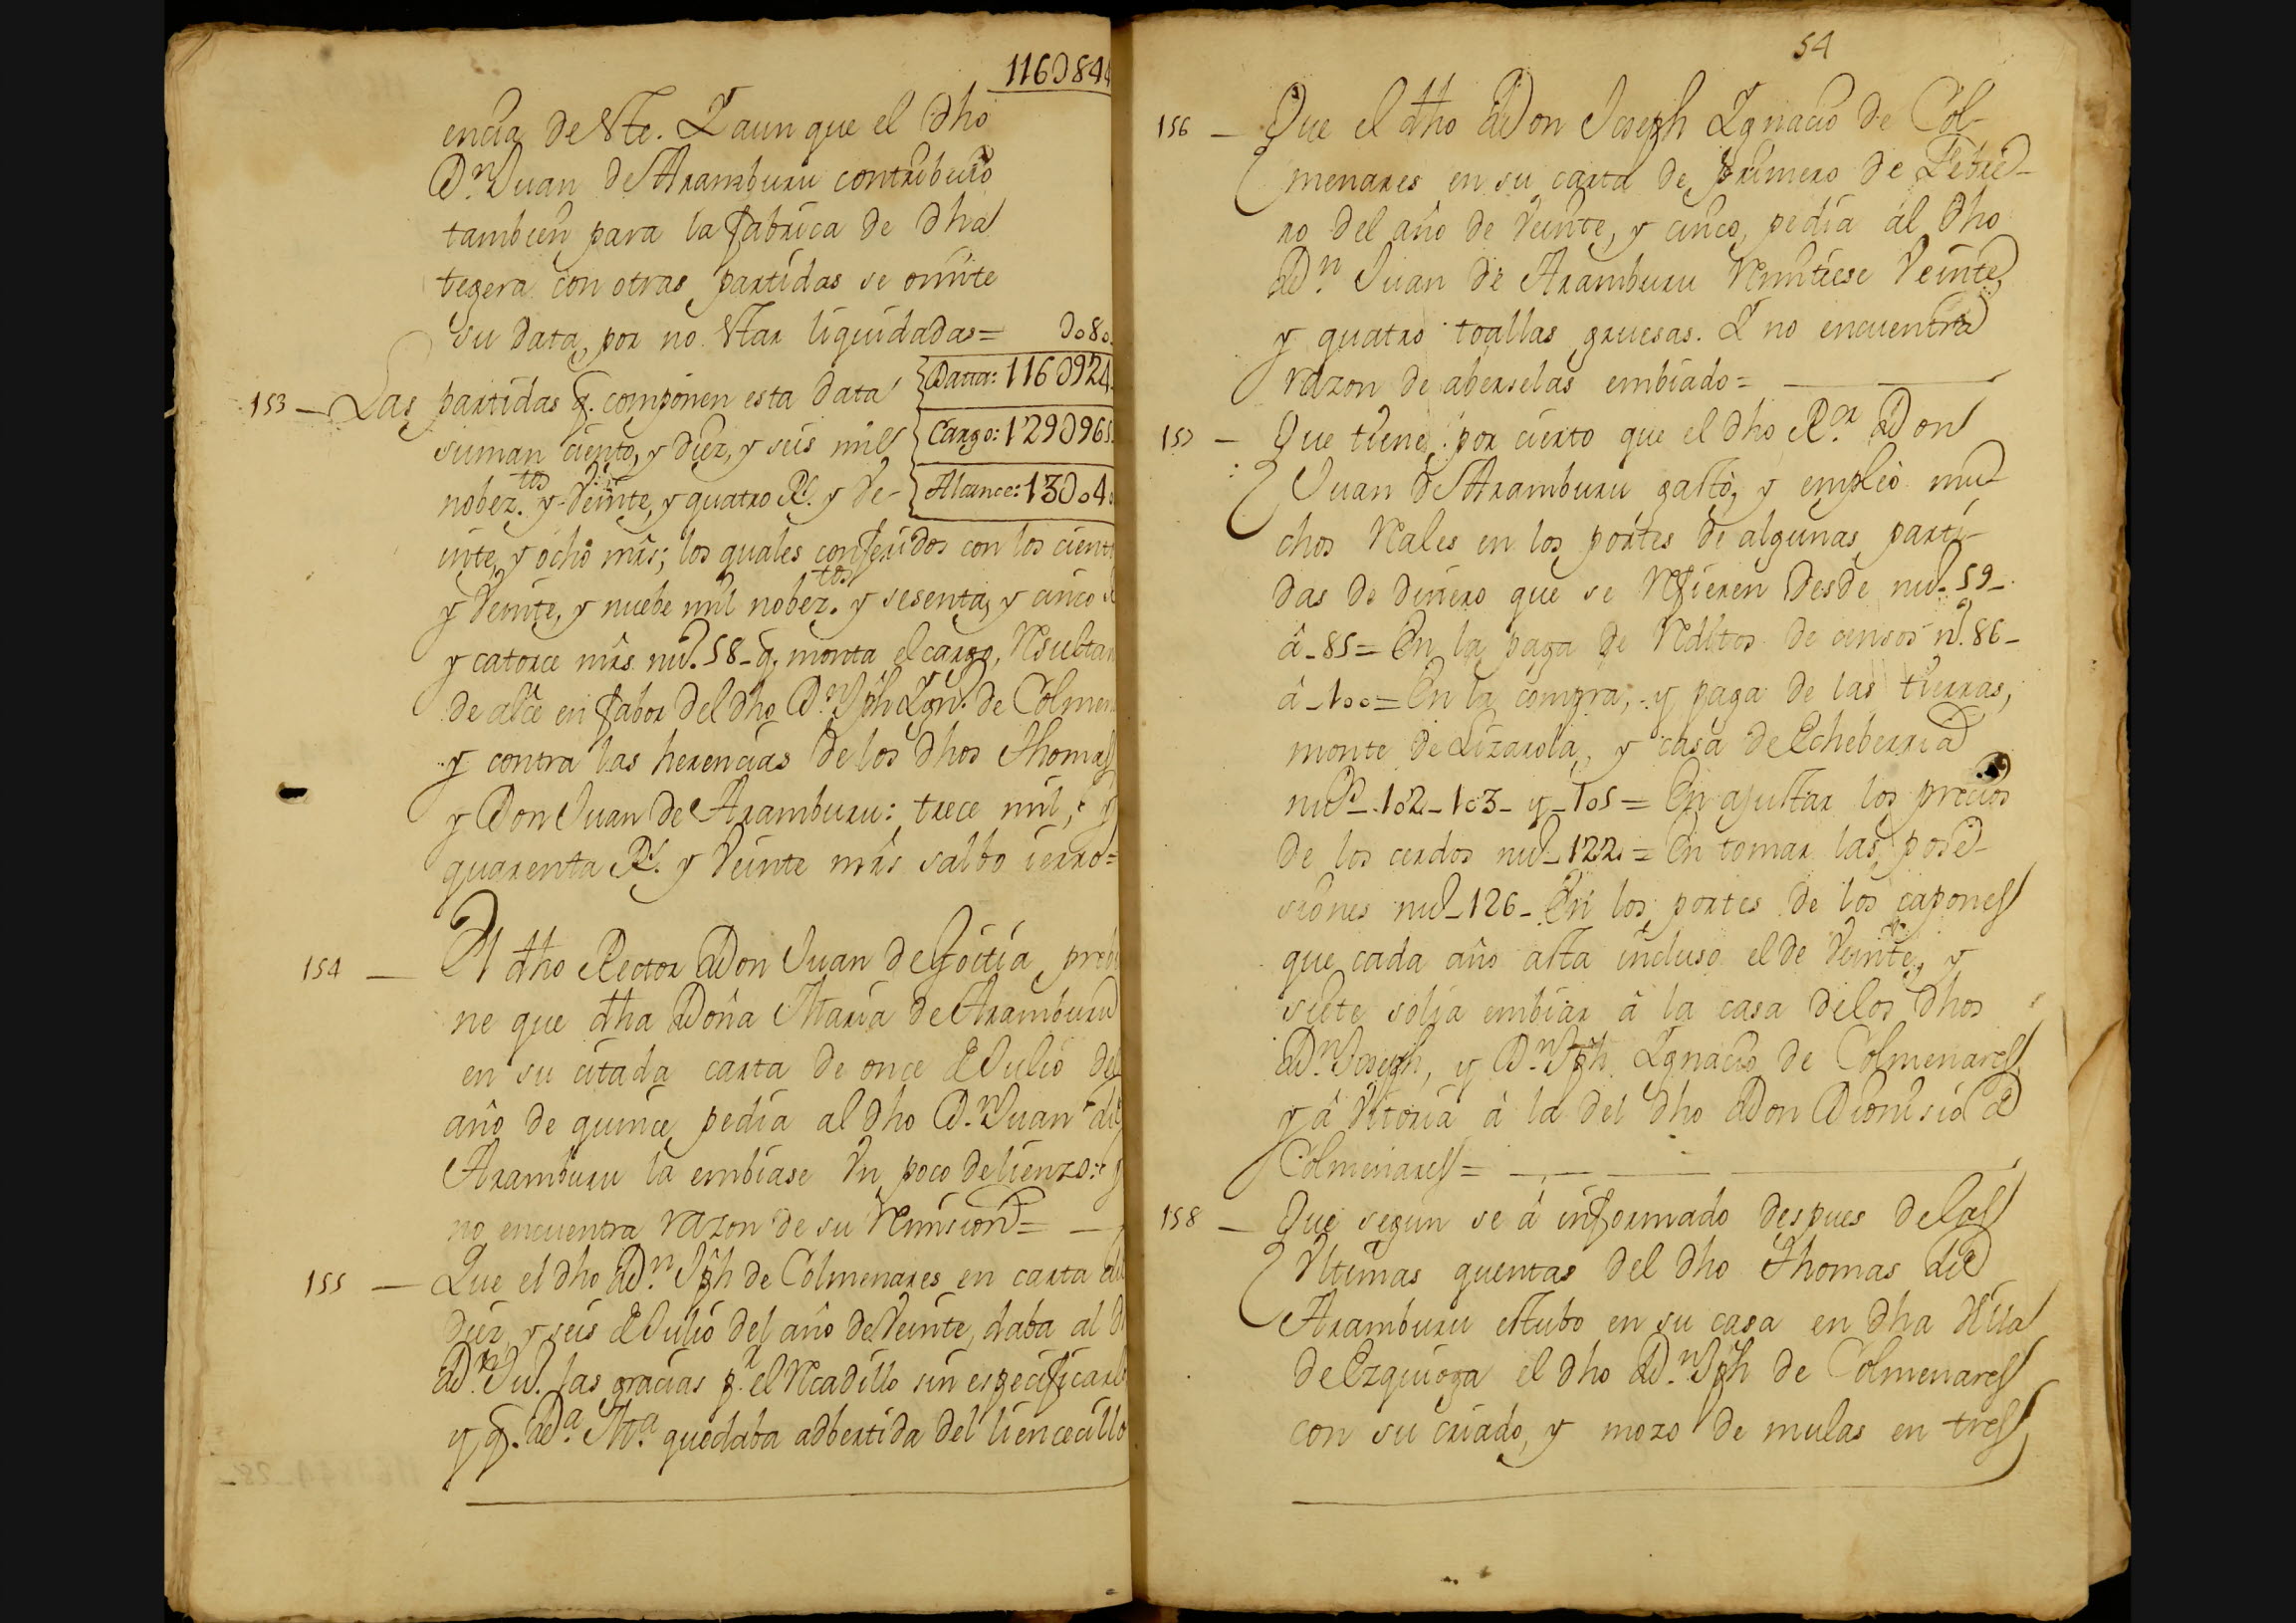 116Ↄ844
encia de este. Y aun que el dho
Dn. Juan de Aramburu contribuió
tambien para la fabrica de dha
tegera con otras partidas se omite
su data, por no estar liquidadas= Ↄo8o
153 – Las partidas q. componen esta data {Datta: 116Ↄ924
suman ciento, y diez, y seis mil {Cargo: 129Ↄ965
nobez.tos y Veinte, y quatro Rs. y Ve- {Alcance: 13Ↄo4o
inte, y ocho mrs; los quales conferidos con los cient
y Veinte, y nuebe mil nobez.tos y sesenta, y cinco
y catorce mrs nuo. 58 – q. monta el cargo, Resultan
de alce en fabor del dho Dn. Jph Ign.o de Colmen
y contra las herencias de los dhos Thomas
y Don Juan de Aramburu: trece mil, y
quarenta Rs. y Veinte mrs salbo ierro=
154 – El dho Rector Don Juan de Goitia prebi
ne que dha Doña Maria de Aramburu
en su citada carta de once de Julio del
año de quince, pedia al dho Dn. Juan de
Aramburu la embiase Vn poco de lienzo: y
no encuentra razon de su Remision=
155 – Que el dho Dn. Jph de Colmenares en carta de
diez, y seis de Julio del año de Veinte, daba al d
Dn. Juo. las gracias pr. el Recadillo sin especificarlo
y q. Da. Ma. quedaba adbertida del liencecillo
54
156 – Que el dho Don Joseph Ignacio de Col-
menares en su carta de primero de Febre-
ro del año de Veinte, y cinco, pedia al dho
Dn. Juan de Aramburu Remitiese Veinte,
y quatro toallas gruesas. Y no encuentra
razon de aberselas embiado=
157 – Que tiene por cierto que el dho Rr. Don
Juan de Aramburu gastó, y empleó mu-
chos Reales en los portes de algunas parti-
das de dinero que se Refieren desde nuo. 59 –
â – 85 = En la paga de Reditos de censos no. 86 –
â – 1oo = En la compra, y paga de las tierras,
monte de Lizarola, y casa de Echeberria
nuos – 1o2 – 1o3 – y – 1o5 = En ajustar los precios
de los cerdos nuo – 122 = En tomar las pose-
siones nuo – 126 – En los portes de los capones
que cada año asta incluso el de Veinte, y
siete solia embiar â la casa de los dhos
Dn. Joseph, y Dn. Jph Ignacio de Colmenares,
y â Vitoria â la del dho Don Dionisio de
Colmenares=
158 – Que segun se â informado despues de las
Vltimas quentas del dho Thomas de
Aramburu estubo en su casa en dha Villa
de Ezquioga el dho Dn. Jph de Colmenares
con su criado, y mozo de mulas en tres